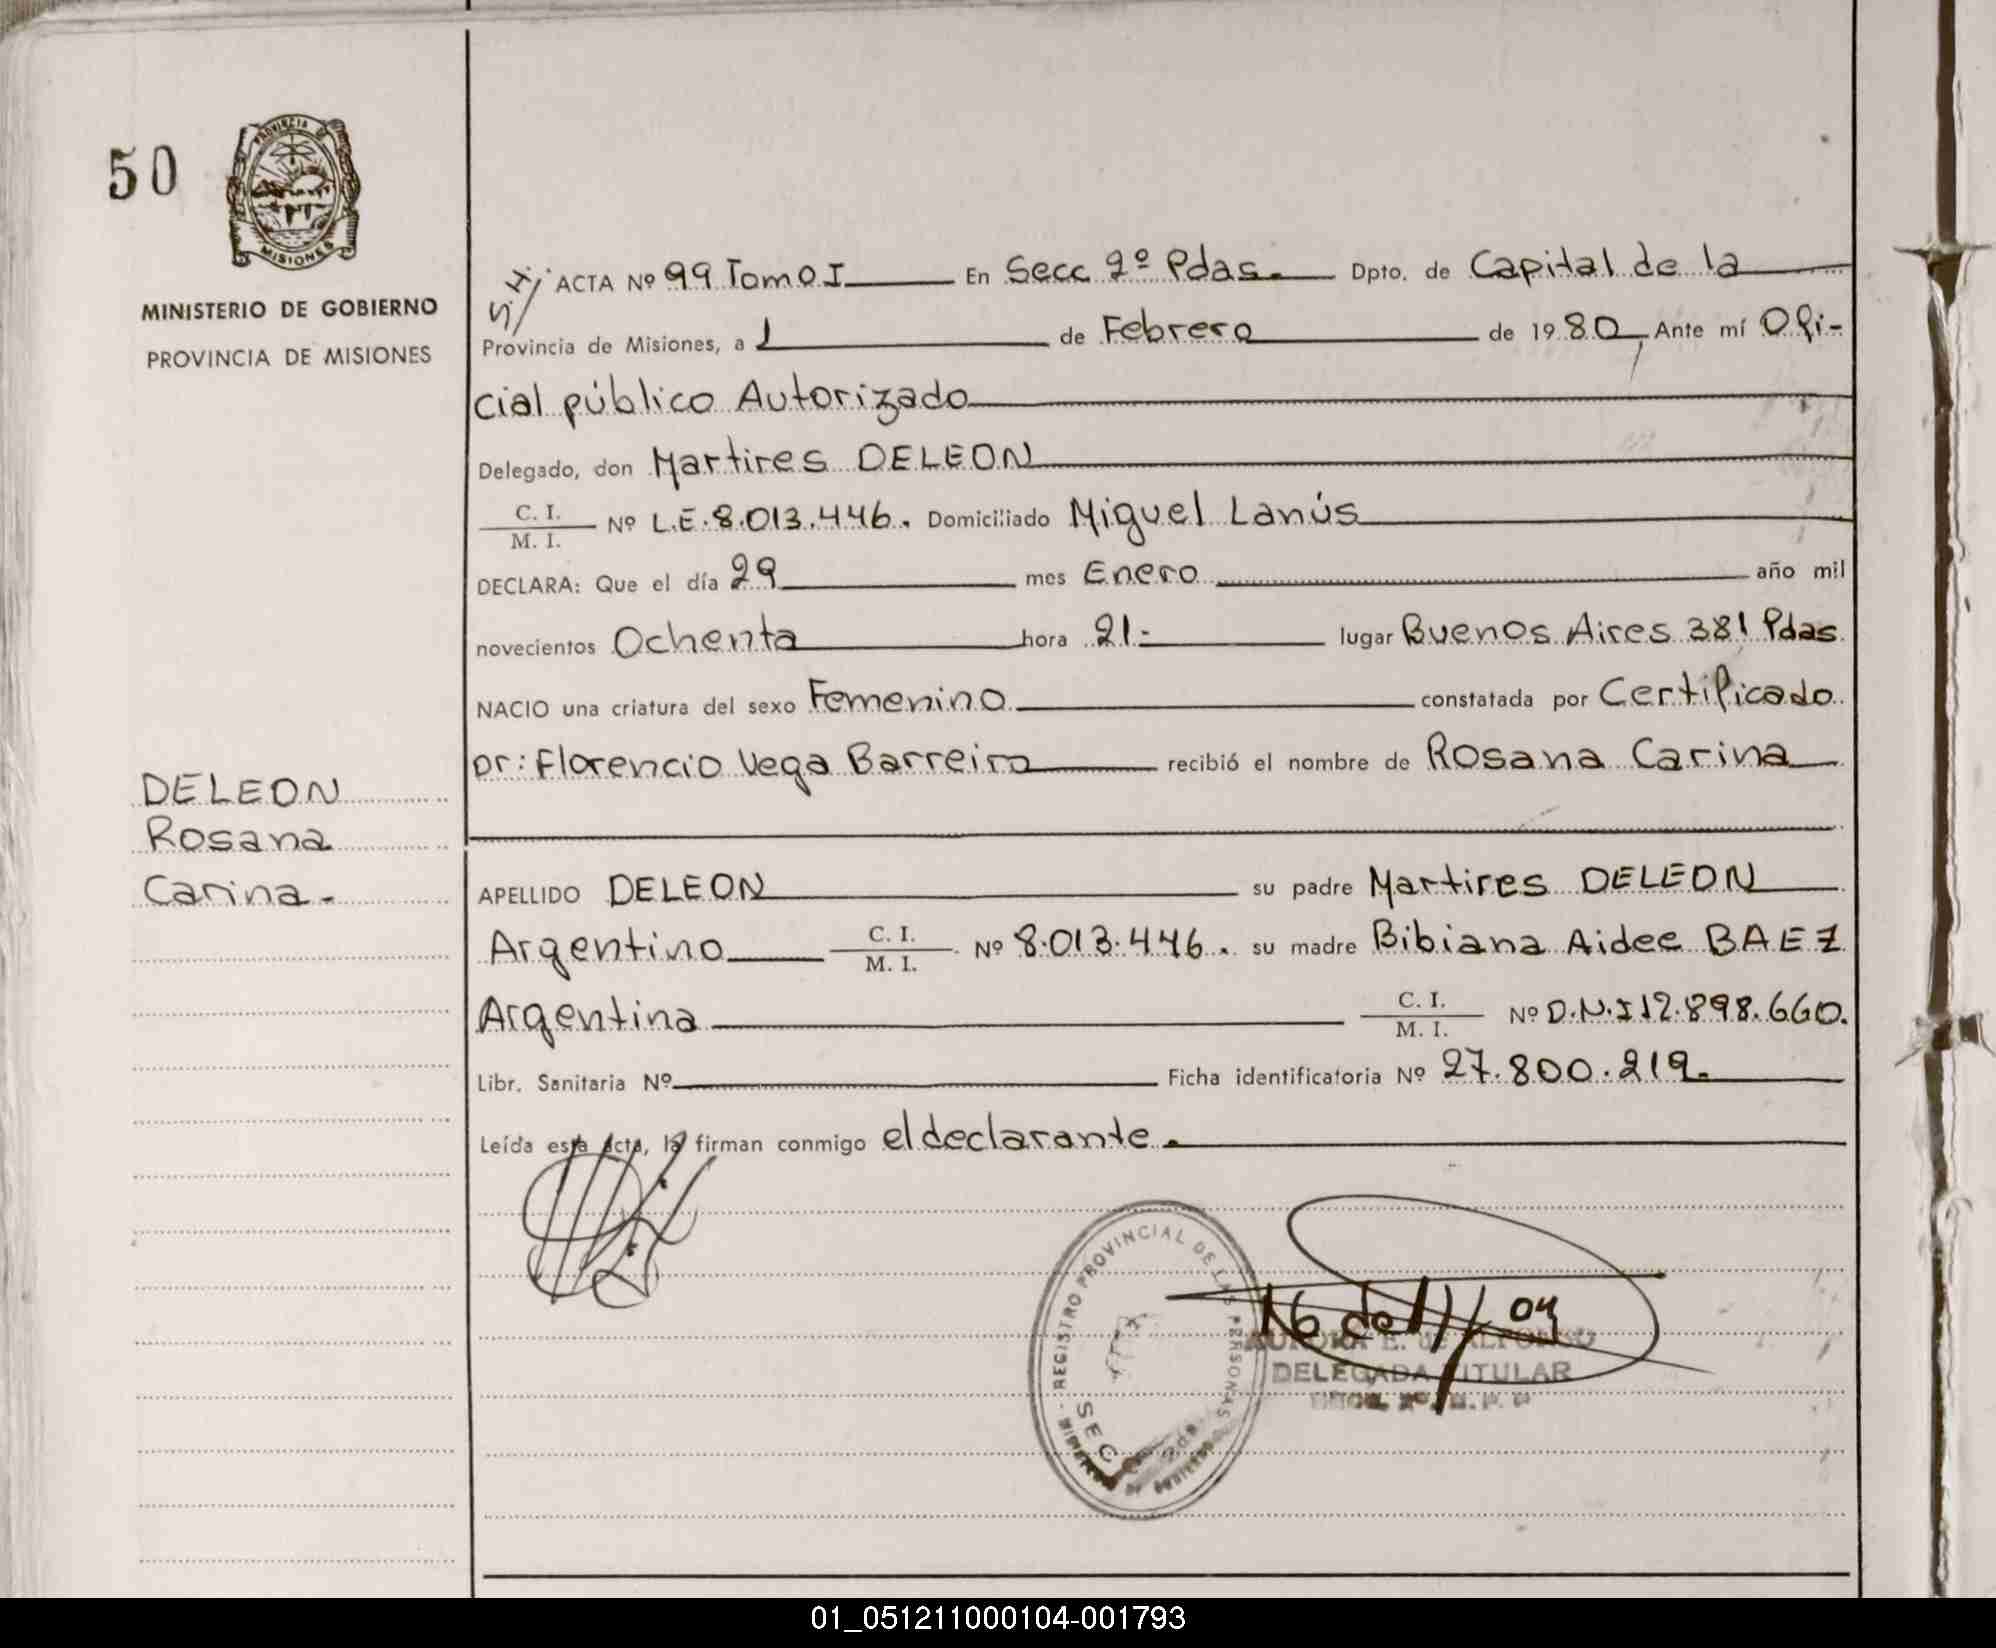 50
PROVINCIA DE
MISIONES
MINISTERIO DE GOBIERNO
PROVINCIA DE MISIONES
DELEON
Rosana
Carina.
ACTA Nº 99 Tomo I En Secc 2º Pdas. Dpto. de Capital de la
Provincia de Misiones, a 1 de Febrero de 1980, Ante mí Ofi-
cial público Autorizado
Delegado, don Martires DELEON
C. I.
M. I. Nº L.E.8.013.446. Domiciliado Miguel Lanús
DECLARA: Que el día 29 mes Enero año mil
novecientos Ochenta hora 21.- lugar Buenos Aires 381 Pdas.
NACIO una criatura del sexo Femenino constatada por Certificado
Dr: Florencio Vega Barreiro recibió el nombre de Rosana Carina
APELLIDO DELEON su padre Martires DELEON
Argentino C. I.
M. I. Nº 8.013.446. su madre Bibiana Aidee BAEZ
Argentina C. I.
M. I. Nº D.N.I 12.898.660.
Libr. Sanitaria Nº Ficha identificatoria Nº 27.800.219.
Leída esta acta, la firman conmigo el declarante.
REGISTRO PROVINCIAL DE LAS PERSONAS
SECC
DELEGADA TITULAR
01_051211000104-001793